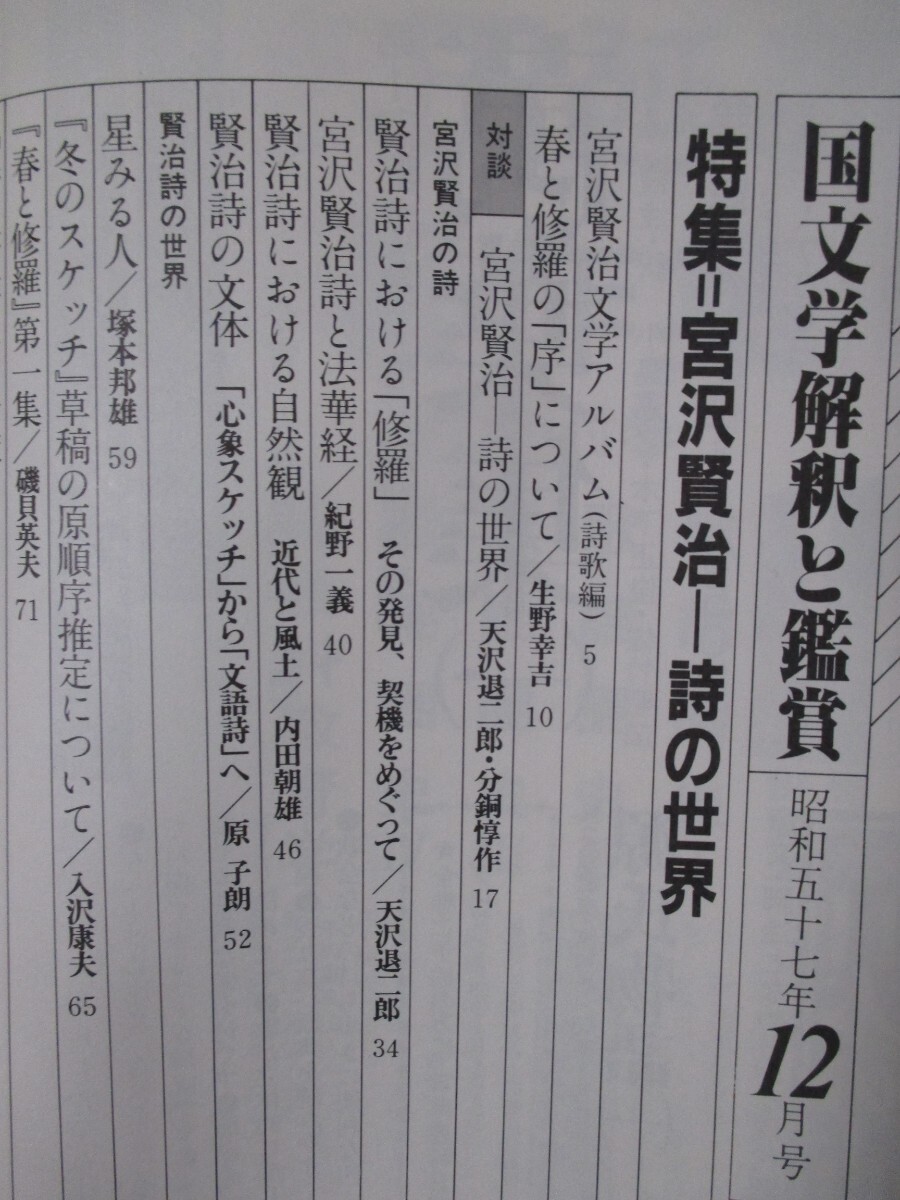 国文学解釈と鑑賞 昭和五十七年12月号
特集=宮沢賢治―詩の世界
宮沢賢治文学アルバム(詩歌編) 5
春と修羅の「序」について/生野幸吉 10
対談 宮沢賢治―詩の世界/天沢退二郎・分銅惇作 17
宮沢賢治の詩
賢治詩における「修羅」 その発見、契機をめぐって/天沢退二郎 34
宮沢賢治詩と法華経/紀野一義 40
賢治詩における自然観 近代と風土/内田朝雄 46
賢治詩の文体 「心象スケッチ」から「文語詩」へ/原 子朗 52
賢治詩の世界
星みる人/塚本邦雄 59
『冬のスケッチ』草稿の原順序推定について/入沢康夫 65
『春と修羅』第一集/磯貝英夫 71